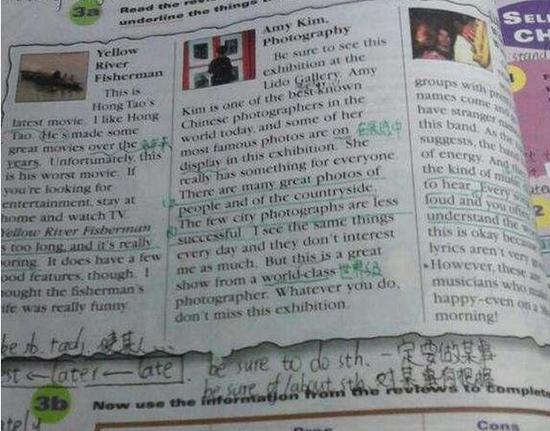 3a
Read the
underline the things
SEL
CH
Yellow
River
Fisherman
This is
Hong Tao's
latest movie. I like Hong
Tao. He's made some
great movies over the
years. Unfortunately, this
is his worst movie. If
you're looking for
entertainment, stay at
home and watch TV.
Yellow River Fisherman
is too long, and it's really
boring. It does have a few
good features, though. I
thought the fisherman's
wife was really funny
Amy Kim,
Photography
Be sure to see this
exhibition at the
Lido Gallery. Amy
Kim is one of the best known
Chinese photographers in the
world today, and some of her
most famous photos are on
展览中
display in this exhibition. She
really has something for everyone.
There are many great photos of
people and of the countryside.
The few city photographs are less
successful. I see the same things
every day and they don't interest
me as much. But this is a great
show from a world-class 世界级
photographer. Whatever you do,
don't miss this exhibition.
groups with
names come and
have stranger na
this band. As the
suggests, the ba
of energy. And
the kind of mus
to hear. Every
loud and you often
understand the w
this is okay becau
lyrics aren't very
However, these are
musicians who mak
happy-even on a
morning!
2
late
later
be sure to do sth. 一定要做某事
be sure of/about sth. 对某事有把握
3b
Now use the information from the reviews to complete
Pros
Cons